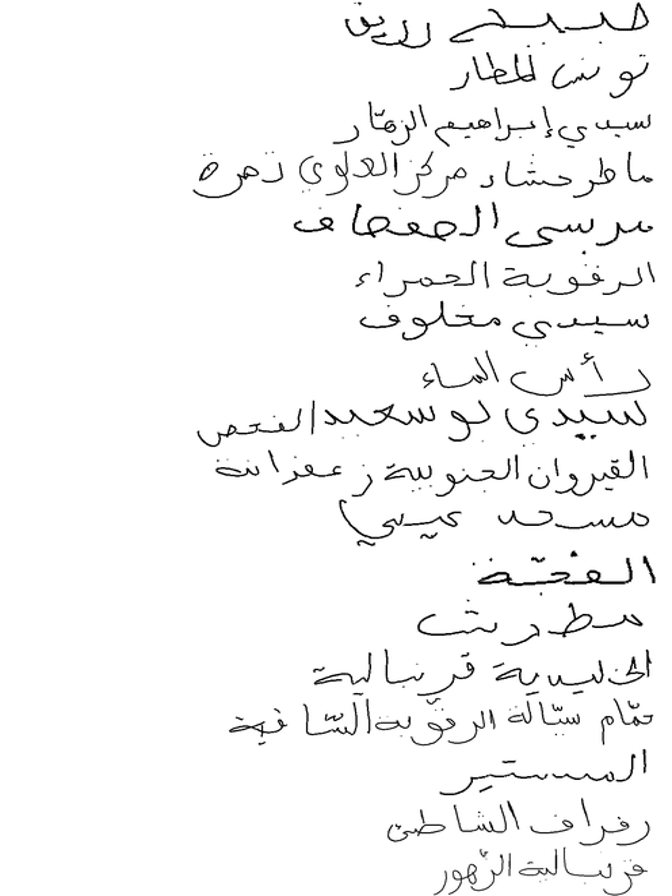 تونس المطار
سيدي إبراهيم الزهّار
ماطر حشاد مركز العلوي زهرة
مرسى الصفصاف
الرقوبة الحمراء
سيدي مخلوف
رأس الماء
سيدي بوسعيد الفحص
القيروان الجنوبية زعفرانة
مسجد عيسى
الخليدية قرنبالية
حمّام سيّالة الرقوبة السّافية
المنستير
رفراف الشاطئ
قرنبالية الزهور